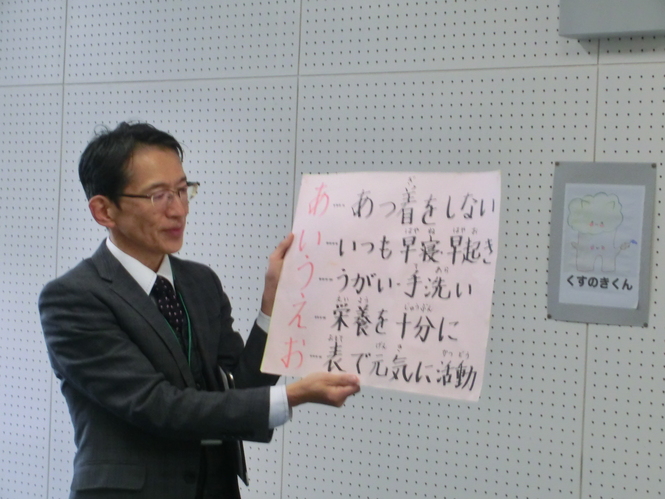 あ…あつ着をしない
い…いつも早寝早起き
う…うがい・手洗い
え…栄養を十分に
お…表で元気に活動
くすのきくん